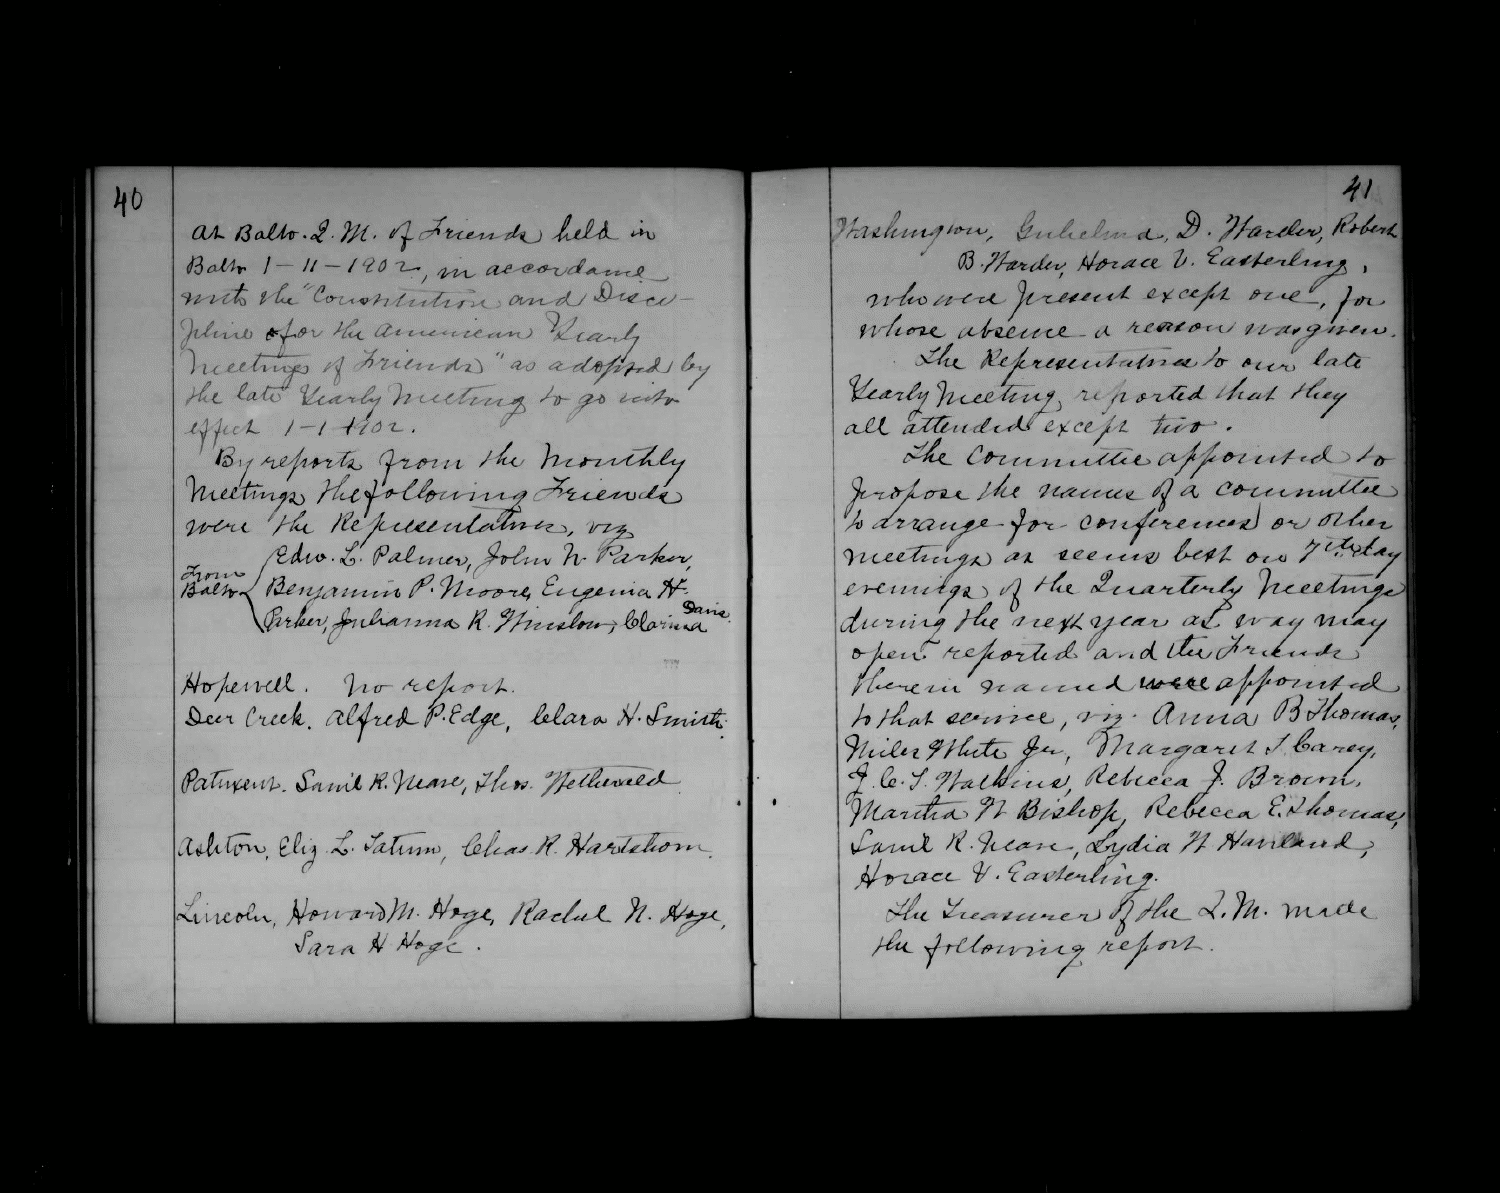 40
At Balto. Q. M. of Friends held in
Balto 1-11-1902, in accordance
with the "Constitution and Disci-
pline for the American Yearly
Meetings of Friends" as adopted by
the late Yearly Meeting to go into
effect 1-1-1902.
By reports from the Monthly
Meetings the following Friends
were the Representatives, viz
Edw. L. Palmer, John W. Parker,
From
Balto
Benjamin P. Moore, Eugenia H.
Parker, Julianna R. Winslow, Clarissa Davis.
Hopewell. No report.
Deer Creek. Alfred P. Edge, Clara H. Smith.
Patuxent. Saml R. Neave, Thos. Wetherald.
Ashton, Eliz. L. Tatum, Chas. R. Hartshorn.
Lincoln, Howard M. Hoge, Rachel N. Hoge,
Sara H Hoge.
41
Washington, Gulielma D. Warder, Robert
B. Warder, Horace V. Easterling,
who were present except one, for
whose absence a reason was given.
The Representatives to our late
Yearly Meeting reported that they
all attended except two.
The Committee appointed to
propose the names of a committee
to arrange for conferences or other
meetings as seems best on 7th day
evenings of the Quarterly Meetings
during the next year as way may
open reported and the Friends
therein named were appointed
to that service, viz. Anna B Thomas,
Miles White Jr, Margaret T. Carey,
J. C. T. Watkins, Rebecca J. Brown,
Martha W Bishop, Rebecca E. Thomas,
Saml R. Neave, Lydia W Haviland,
Horace V. Easterling.
The Treasurer of the Q. M. made
the following report.